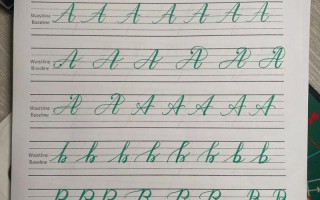 A A A A A A A
Waistline
Baseline
A A A A A A
Waistline
Baseline
A A A A A A A
Waistline
Baseline
b b b b b b b
Waistline
Baseline
B B B B B B B